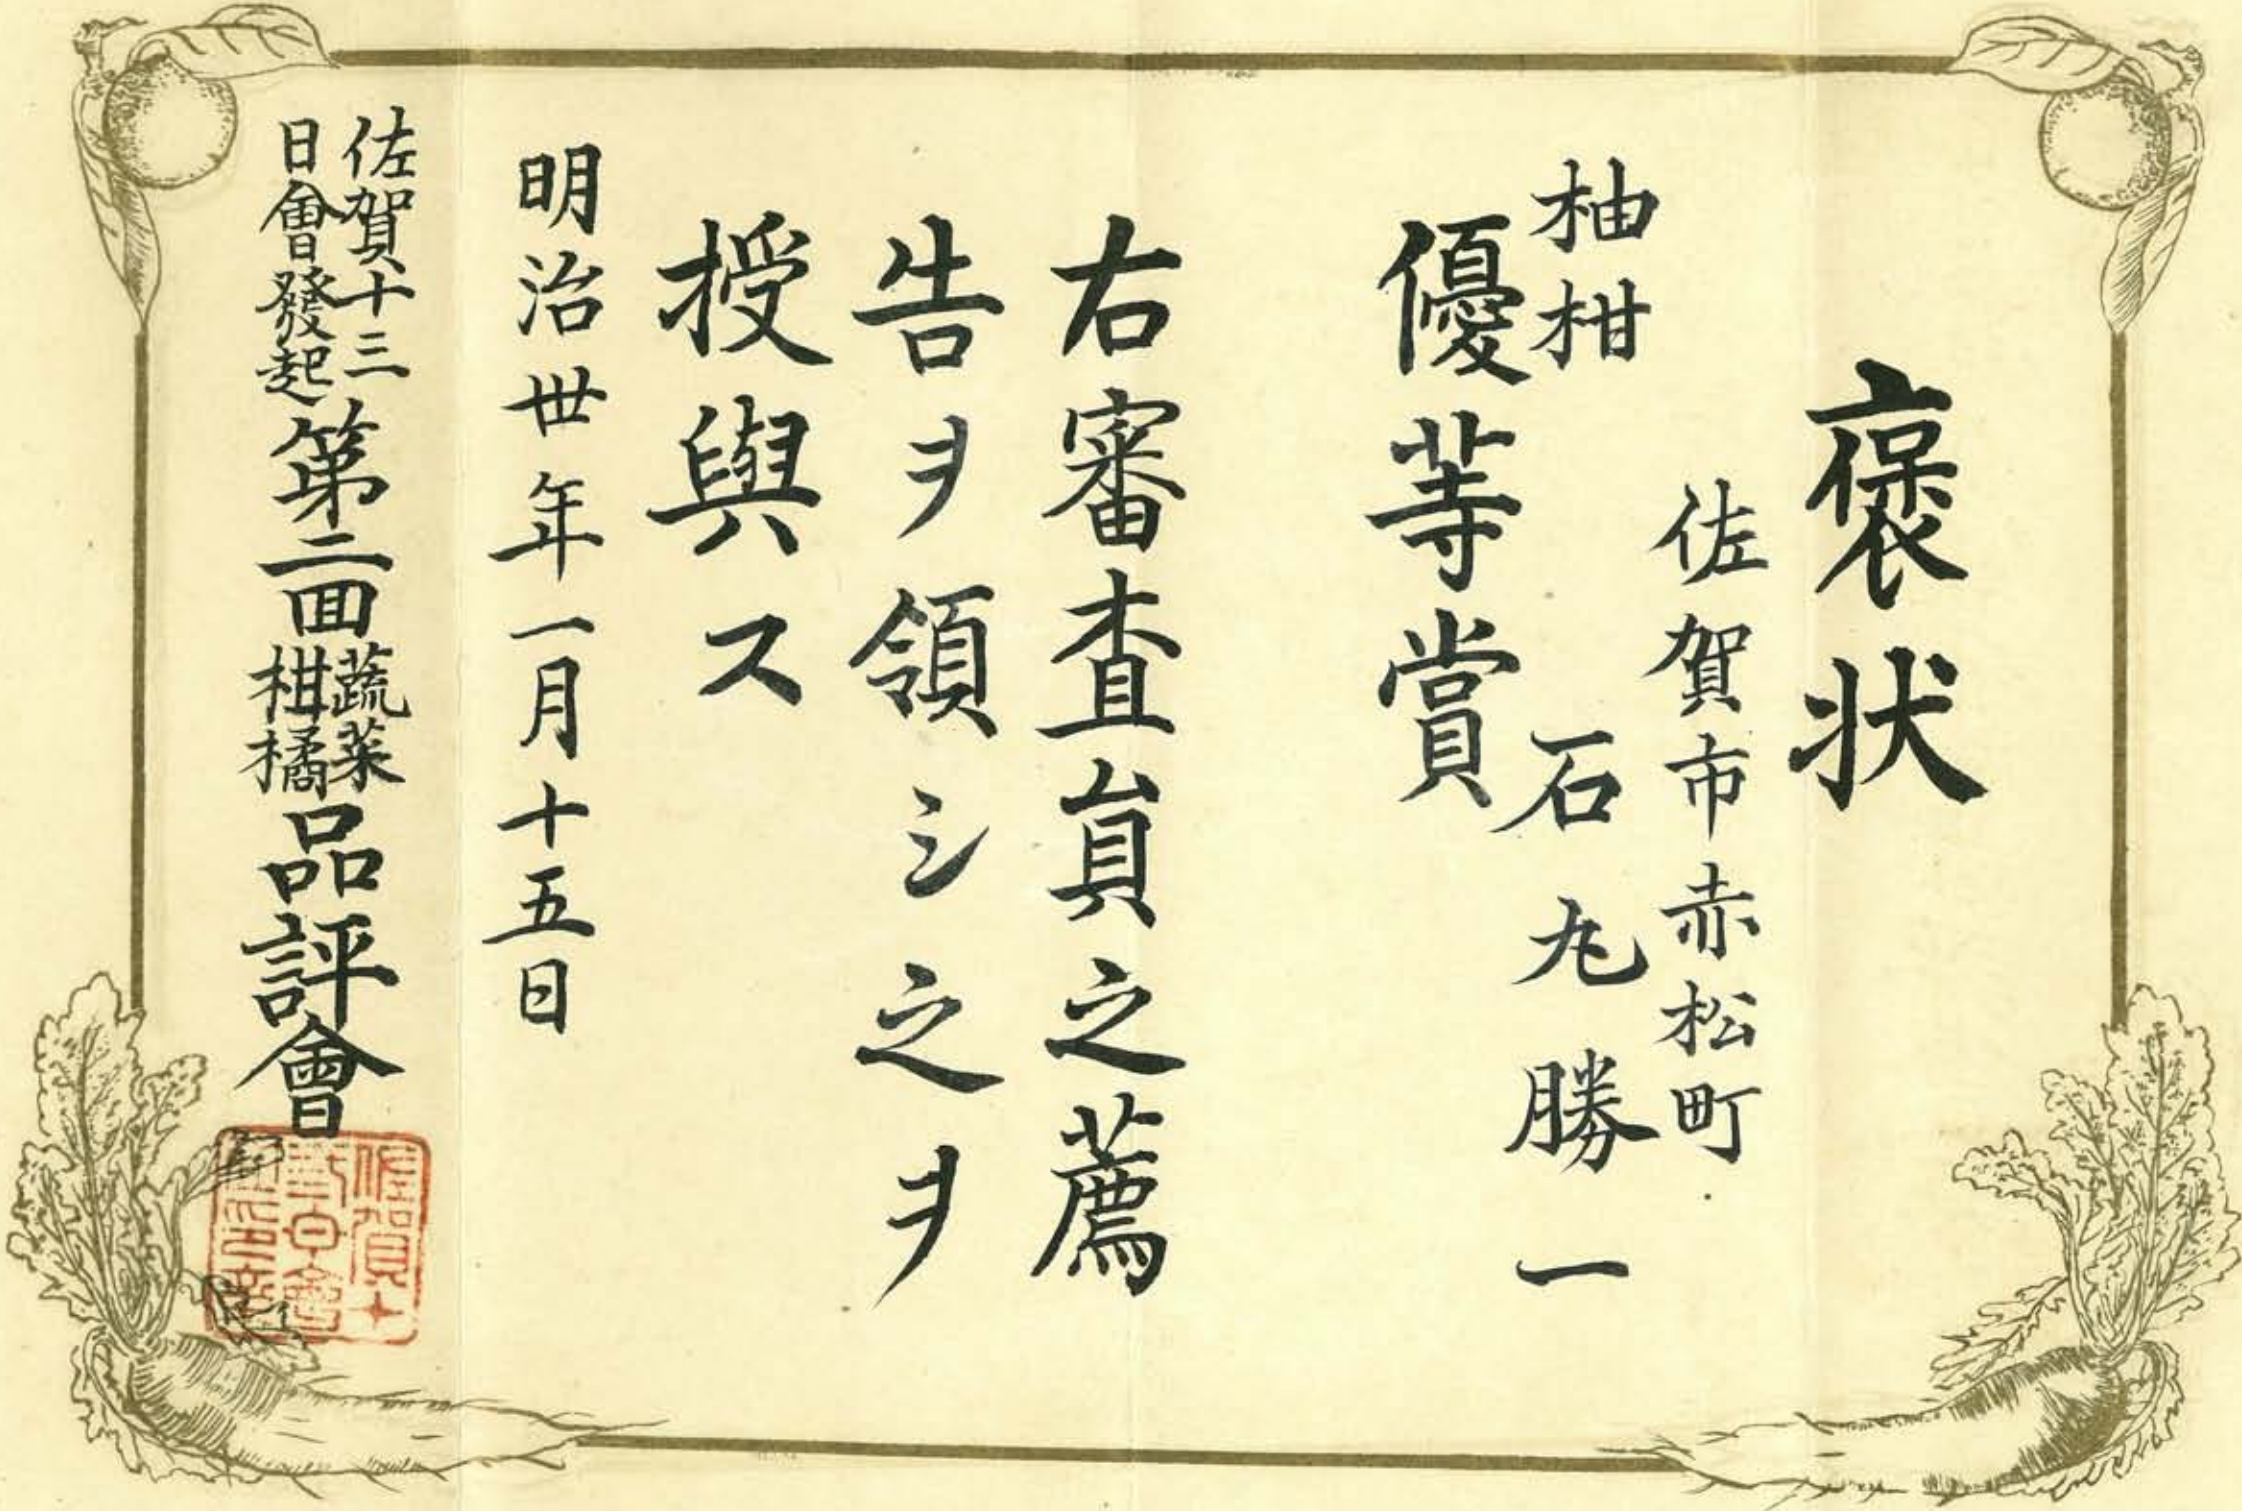 褒状
佐賀市赤松町
石丸勝一
柚柑
優等賞
右審査員之薦
告ヲ領シ之ヲ
授與ス
明治丗年一月十五日
佐賀十三日會發起第二回蔬菜柑橘品評會
佐賀十
三日會